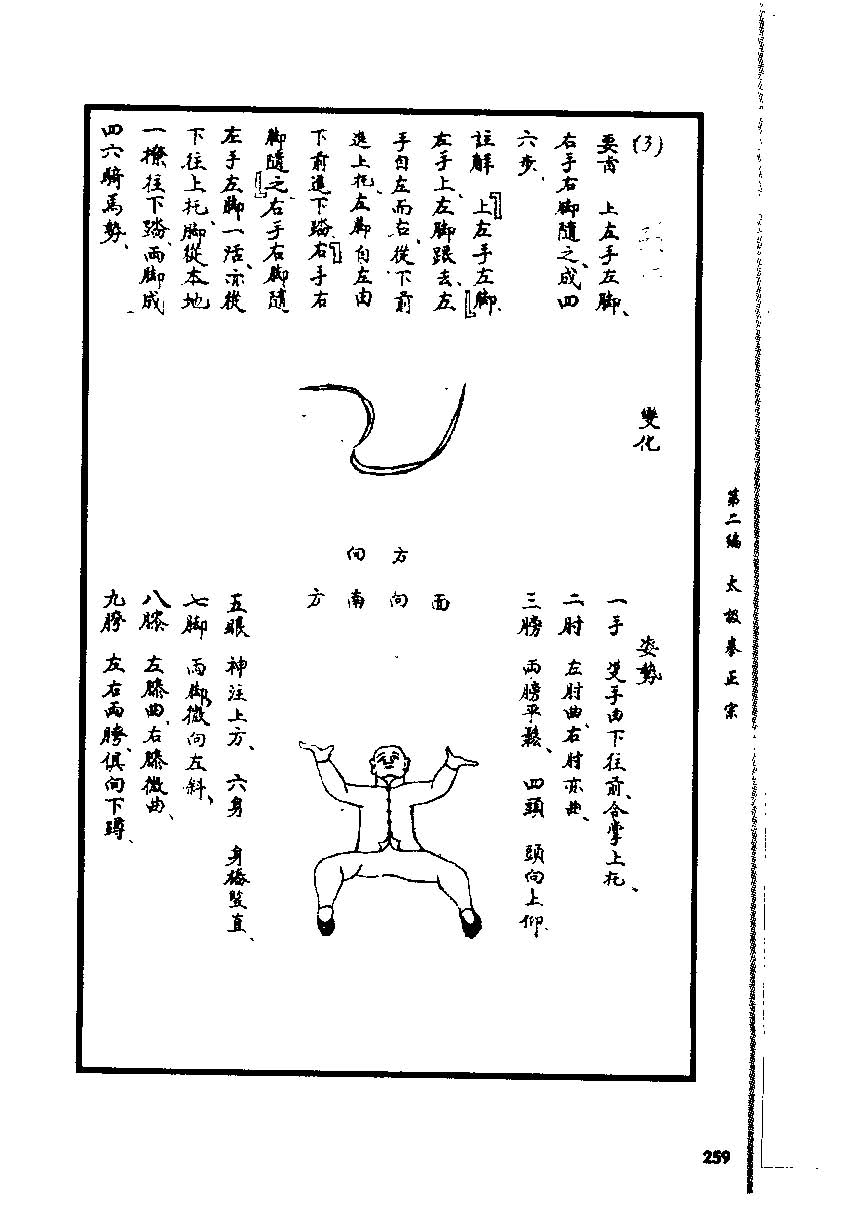 (3)
要旨　上左手左脚、
右手右脚隨之、成四
六步、
註解　「上左手左脚」
左手上、左脚跟去、左
手自左而右、從下前
進上托、左脚自左由
下前進下踏、「右手右
脚隨之」右手右脚隨
左手左脚一活、亦從
下往上托、脚從本地
一撩往下踏、兩脚成
四六騎馬勢、
變化
方向
面向南方
姿勢
一手　雙手由下往前、合掌上托、
二肘　左肘曲、右肘亦曲、
三膀　兩膀平鬆、四頭　頭向上仰、
五眼　神注上方、六身　身樁竪直、
七脚　兩脚微向左斜、
八膝　左膝曲、右膝微曲、
九胯　左右兩胯、俱向下蹲、
第二編　太極拳正宗
259